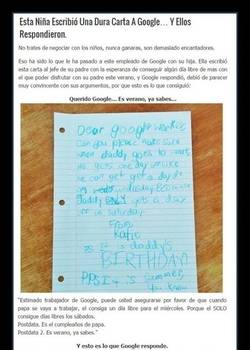 Esta Niña Escribió Una Dura Carta A Google… Y Ellos
Respondieron.
No trates de negociar con los niños, nunca ganaras, son demasiado encantadores.
Eso ha sido lo que le ha pasado a este empleado de Google con su hija. Ella escribió
esta carta al jefe de su padre con la esperanza de conseguir algún día libre de mas con
el que poder disfrutar con su padre este verano, y Google respondió, debió de parecer
muy convincente con sus argumentos, por que esto es lo que consiguió:
Querido Google… Es verano, ya sabes…
Dear google worker
Can you please make sure
when daddy goes to work
he gets one day off
he can get a day off
on wednesday
daddy ONLY gets a day
off on saturday
From
Katie
P.S. It is daddy's
BIRTHDAY!
PPS It is summer,
you know
"Estimado trabajador de Google, puede usted asegurarse por favor de que cuando
papa se vaya a trabajar, el consiga un día libre para el miércoles. Porque el SOLO
consigue días libres los sábados.
Postdata. Es el cumpleaños de papa.
Postdata 2. Es verano, ya sabes."
Y esto es lo que Google responde.